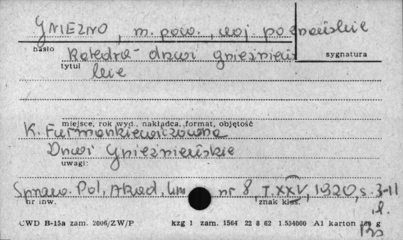 GNIEZNO, m. pow., woj. poznańskie
hasło
Katedra - drzwi gnieźnień
tytuł
skie
sygnatura
miejsce, rok wyd., nakładca, format, objętość
K. Furmankiewiczówna
Drzwi Gnieźnieńskie
uwagi:
Spraw. Pol. Akad. Um nr 8, T. XXV, 1920, s. 3-11
nr inw.
znak klas.
il.
CWD B-15a zam. 2606/ZW/P kzg 1 zam. 1564 22 8 62 1.534000 A1 karton g